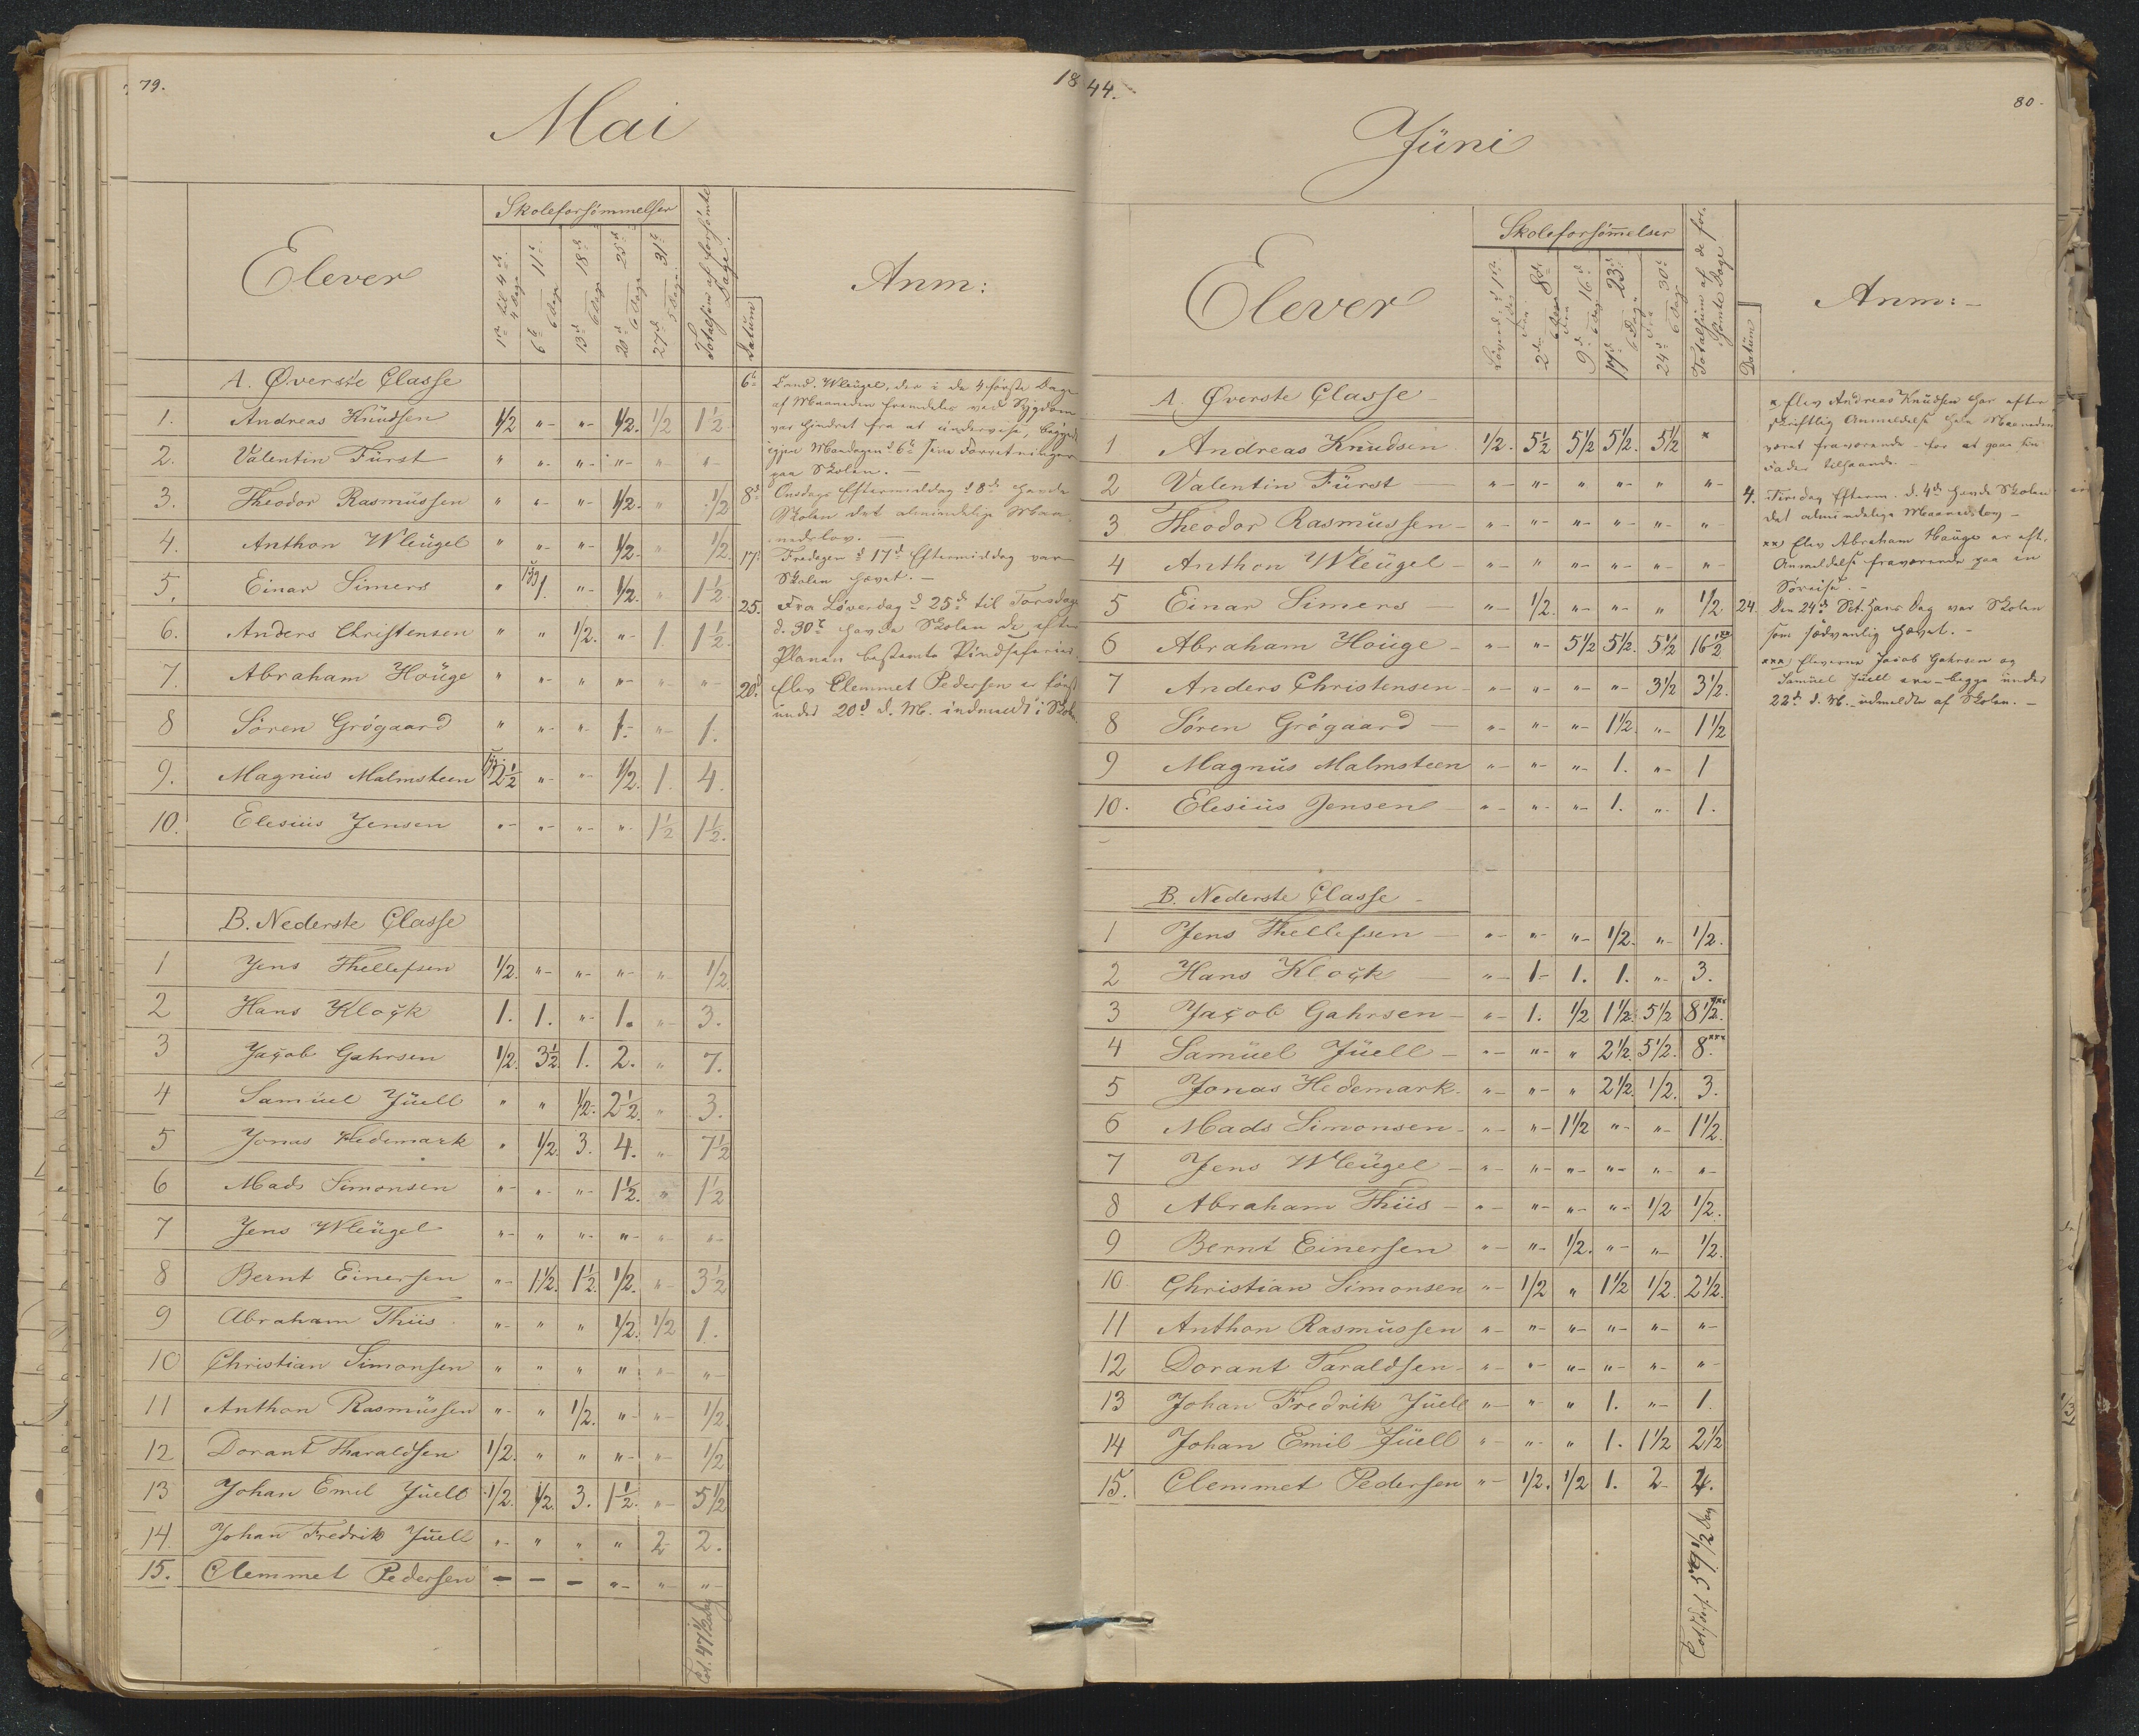 79.
18
Mai
Elever
Skoleforsömmelser
1ste til 4de 4 Dage
6te — 11te 6 Dage
13de — 18de 6 Dage
20de — 25de 6 Dage
27de — 31te 5 Dage
Totalsüm af forsömte Dage.
Datüm
Anm:
A. Øverste Classe
1. Andreas Knüdsen 1/2 "- "- 1/2. 1/2 1 1/2.
2. Valentin Fürst " "- "- "- "- "-
3. Theodor Rasmüssen " "- "- 1/2. "- 1/2
4. Anthon Wleügel " "- "- 1/2. "- 1/2.
5. Einar Simers " syg 1. "- 1/2. "- 1 1/2.
6. Anders Christensen " " 1/2. "- 1. 1 1/2.
7. Abraham Hoüge " "- " "- "- "-
8 Sören Grögaard " "- "- 1.- "- 1.
9. Magnüs Malmsteen syg 2 1/2 "- "- 1/2. 1. 4.
10. Elesiüs Jensen "- "- "- "- 1 1/2 1 1/2.
B. Nederste Classe
1 Jens Thellefsen 1/2. "- "- "- "- 1/2.
2 Hans Klock 1. 1. "- 1. "- 3.
3 Jacob Gahrsen 1/2. 3 1/2. 1. 2. "- 7.
4 Samüel Jüell " " 1/2. 2 1/2. " 3.
5 Jonas Hedemark " 1/2. 3. 4. "- 7 1/2
6 Mads Simonsen "- "- "- 1 1/2. " 1 1/2
7 Jens Wleügel "- " "- "- "- "-
8 Bernt Einersen "- 1 1/2. 1 1/2. 1/2. "- 3 1/2
9 Abraham Thiis "- " " 1/2. 1/2 1.
10 Christian Simonsen " " " " "- "-
11 Anthon Rasmüssen "- " 1/2. "- "- 1/2.
12 Dorant Tharaldsen 1/2. " " "- "- 1/2
13 Johan Emil Jüell 1/2. 1/2. 3. 1 1/2. "- 5 1/2
14. Johan Fredrik Jüell "- " " " 2 2.
15. Clemmet Pedersen - - - "- "- "-
Tot. 47 1/2 Dag
6te Cand. Wleügel, der i de 4 første Dage
af Maaneden fremdeles ved Sygdom
var hindret fra at ündervise, begynd
igjen Mandagen d. 6te sine Forretninger
paa Skolen. —
8de Onsdags Eftermiddag d 8de havde
Skolen det almindelige Maa-
nedslov. —
17. Fredagen d 17de Eftermiddag var
Skolen hævet. —
25. Fra Løverdag d 25de til Torsdag
d. 30te havde Skolen de efter
Planen bestemte Pindseferier.
20d Elev Clemmet Pedersen er først
ünder 20d d. M. indmeldt i Skolen
44.
80-
Jüni
Elever
Skoleforsömelser
Løverd. d 1ste 1 Dag
Fra 2den — 8de 6 Dage
Fra 9de — 16de 6 Dage
17de — 23de 6 Dage
Fra 24de — 30te 6 Dage
Totalsüm af de for-
sömte Dage
Datüm
Anm: -
A. Øverste Classe
1 Andreas Knüdsen 1/2. 5 1/2 5 1/2 5 1/2. 5 1/2 x
2 Valentin Fürst "- "- " "- " "-
3 Theodor Rasmüssen "- "- "- "- "- "-
4 Anthon Wleügel "- " "- "- "- "-
5 Einar Simers "- 1/2. "- "- " 1/2.
6 Abraham Hoüge "- "- 5 1/2 5 1/2. 5 1/2 16 1/2 xx
7 Anders Christensen "- "- "- "- 3 1/2 3 1/2.
8 Sören Grögaard "- "- "- 1 1/2. "- 1 1/2
9 Magnüs Malmsteen "- "- "- 1. "- 1
10. Elesiüs Jensen "- "- "- 1. "- 1.
B. Nederste Classe
1 Jens Thellefsen "- "- "- 1/2. "- 1/2.
2 Hans Klock "- 1- 1. 1. "- 3.
3 Jacob Gahrsen "- 1. 1/2 1 1/2. 5 1/2 8 1/2. xxx
4 Samüel Jüell "- "- " 2 1/2. 5 1/2. 8. xxx
5 Jonas Hedemark. "- "- " 2 1/2. 1/2. 3.
6 Mads Simonsen "- "- 1 1/2 "- "- 1 1/2.
7 Jens Wleügel "- "- "- "- "- "-
8 Abraham Thiis "- "- "- "- 1/2 1/2.
9 Bernt Einersen "- "- 1/2. "- "- 1/2.
10 Christian Simonsen "- 1/2 " 1 1/2 1/2. 2 1/2.
11 Anthon Rasmüssen "- "- "- "- "- "-
12 Dorant Taraldsen "- "- "- "- "- "-
13 Johan Fredrik Jüell "- "- " 1. "- 1.
14 Johan Emil Jüell "- "- " 1. 1 1/2 2 1/2
15. Clemmet Pedersen "- 1/2. 1/2 1. 2 4.
59 1/2 Dag
x Elev Andreas Knüdsen har efter
skriftlig Anmeldelse hele Maaneden
været fraværende for at gaae sin
Fader tilhaande. —
4. Tirsdag Efterm. d. 4de havde Skolen
det almindelige Maanedslov —
xx) Elev Abraham Haüge er eft.
Anmeldelse fraværende paa en
Søreise. —
24. Den 24de Sct. Hans Dag var Skolen
som sædvanlig hævet. —
xxx) Eleverne Jacob Gahrsen og
Samüel Jüell ere — begge ünder
22de d. M. — üdmeldte af Skolen. —